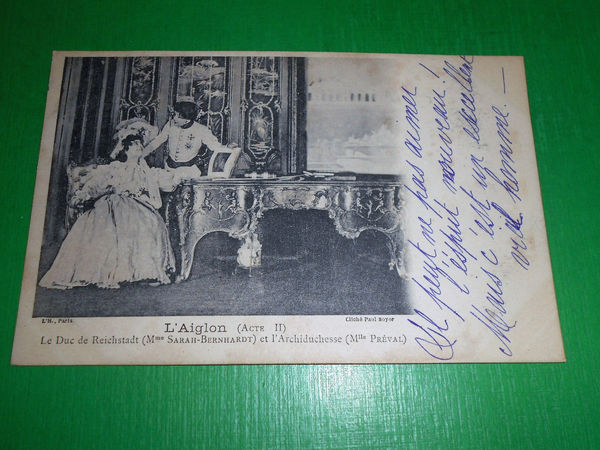 L'H., Paris.
Cliché Paul Boyer
L'Aiglon (Acte II)
Le Duc de Reichstadt (Mme Sarah-Bernhardt) et l'Archiduchesse (Mlle Préval)
Il peut ne pas aimer
l'esprit nouveau !
Mais c'est un excellent
vieil homme. —